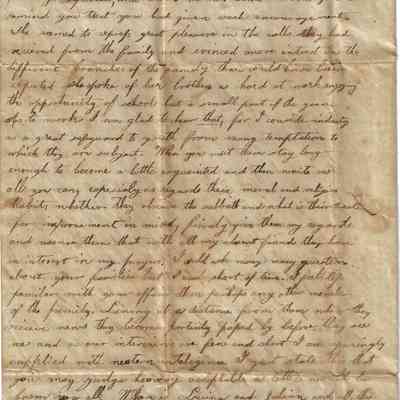 remind you that you had given each encouragement
She seemed to express great pleasure in the calls they had
received from the family and evinced more interest in the
different branches of the family than could have been
expected she spoke of her brothers as hard at work enjoying
the opportunity of school but a small part of the year
as to work I am glad to hear that, for I consider industry
as a great safeguard to youth from many temptation to
which they are subject. When you visit them stay long
enough to become a little acquainted and then write us
all you can especially as regards their moral and religious
habits, whether they observe the sabbath and what is their taste
for improvement in mind, give them my regards
and assure them that with all my absent friends they have
an interest in my prayers. I could ask many many questions
about your families but I am short of time.
familiar with your affairs than perhaps any other member
of the family. Living at a distance from them when they
receive news they become partially by before they see
us and as our interviews are few and short I am sparingly
supplied with western intelligence I just state this that
you may judge how acceptable a letter would be
from you all. When